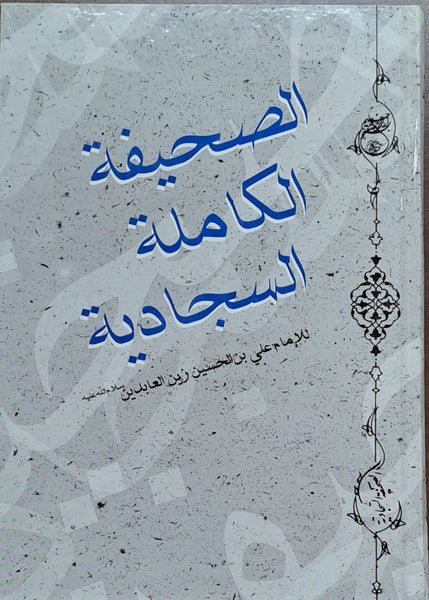 الصحيفة
الكاملة
السجادية
للإمام علي بن الحسين زين العابدين سلام الله عليه